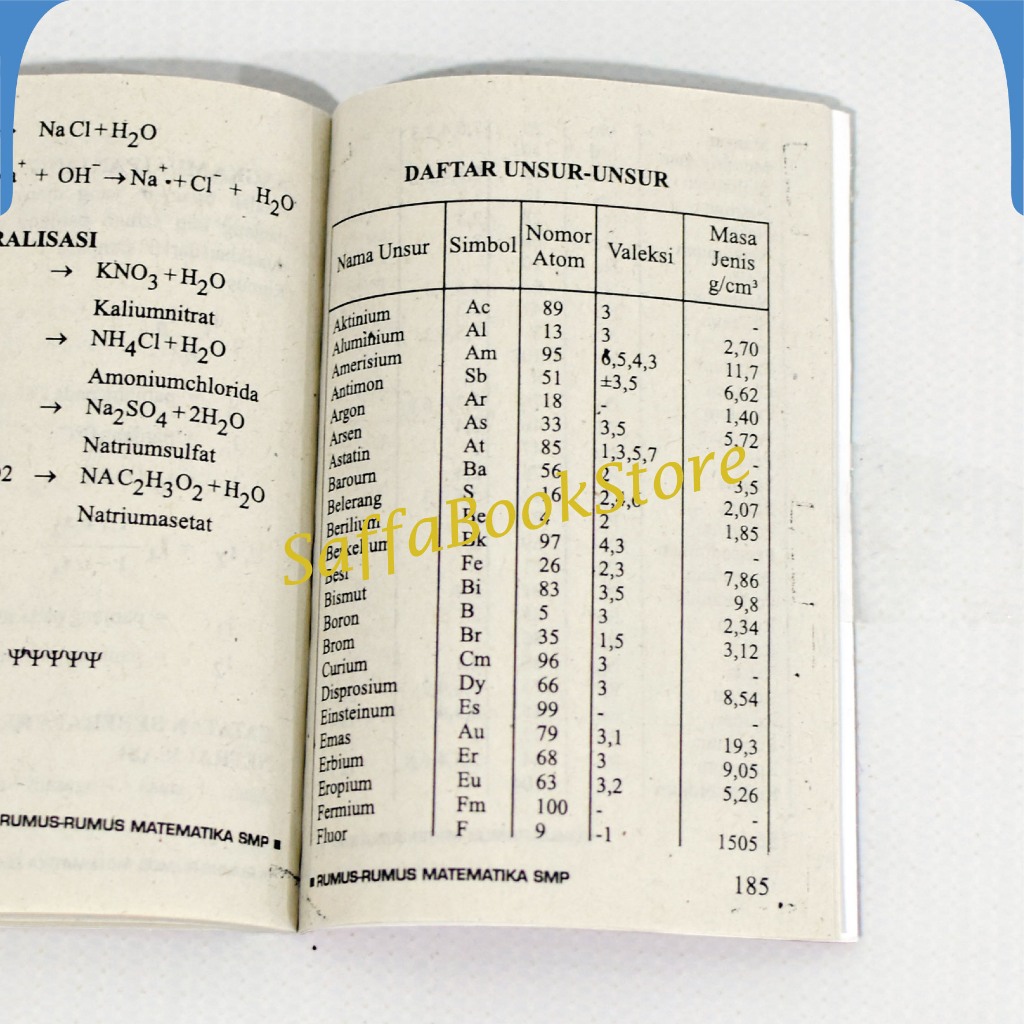 Na Cl + H₂O
+ OH⁻ → Na⁺ + Cl⁻ + H₂O
RALISASI
→ KNO₃ + H₂O
Kaliumnitrat
→ NH₄Cl + H₂O
Amoniumchlorida
→ Na₂SO₄ + 2H₂O
Natriumsulfat
→ NAC₂H₃O₂ + H₂O
Natriumasetat
ΨΨΨΨΨ
RUMUS-RUMUS MATEMATIKA SMP ■
DAFTAR UNSUR-UNSUR
Nama Unsur Simbol Nomor Atom Valeksi Masa Jenis g/cm³
Aktinium Ac 89 3 -
Aluminium Al 13 3 2,70
Amerisium Am 95 6,5,4,3 11,7
Antimon Sb 51 ±3,5 6,62
Argon Ar 18 - 1,40
Arsen As 33 3,5 5,72
Astatin At 85 1,3,5,7 -
Barourn Ba 56 2 3,5
Belerang S 16 2,4,6 2,07
Berilium Be 4 2 1,85
Berkelium Bk 97 4,3 -
Besi Fe 26 2,3 7,86
Bismut Bi 83 3,5 9,8
Boron B 5 3 2,34
Brom Br 35 1,5 3,12
Curium Cm 96 3 -
Disprosium Dy 66 3 8,54
Einsteinum Es 99 - -
Emas Au 79 3,1 19,3
Erbium Er 68 3 9,05
Eropium Eu 63 3,2 5,26
Fermium Fm 100 - -
Fluor F 9 -1 1505
■ RUMUS-RUMUS MATEMATIKA SMP
185
SaffaBookStore